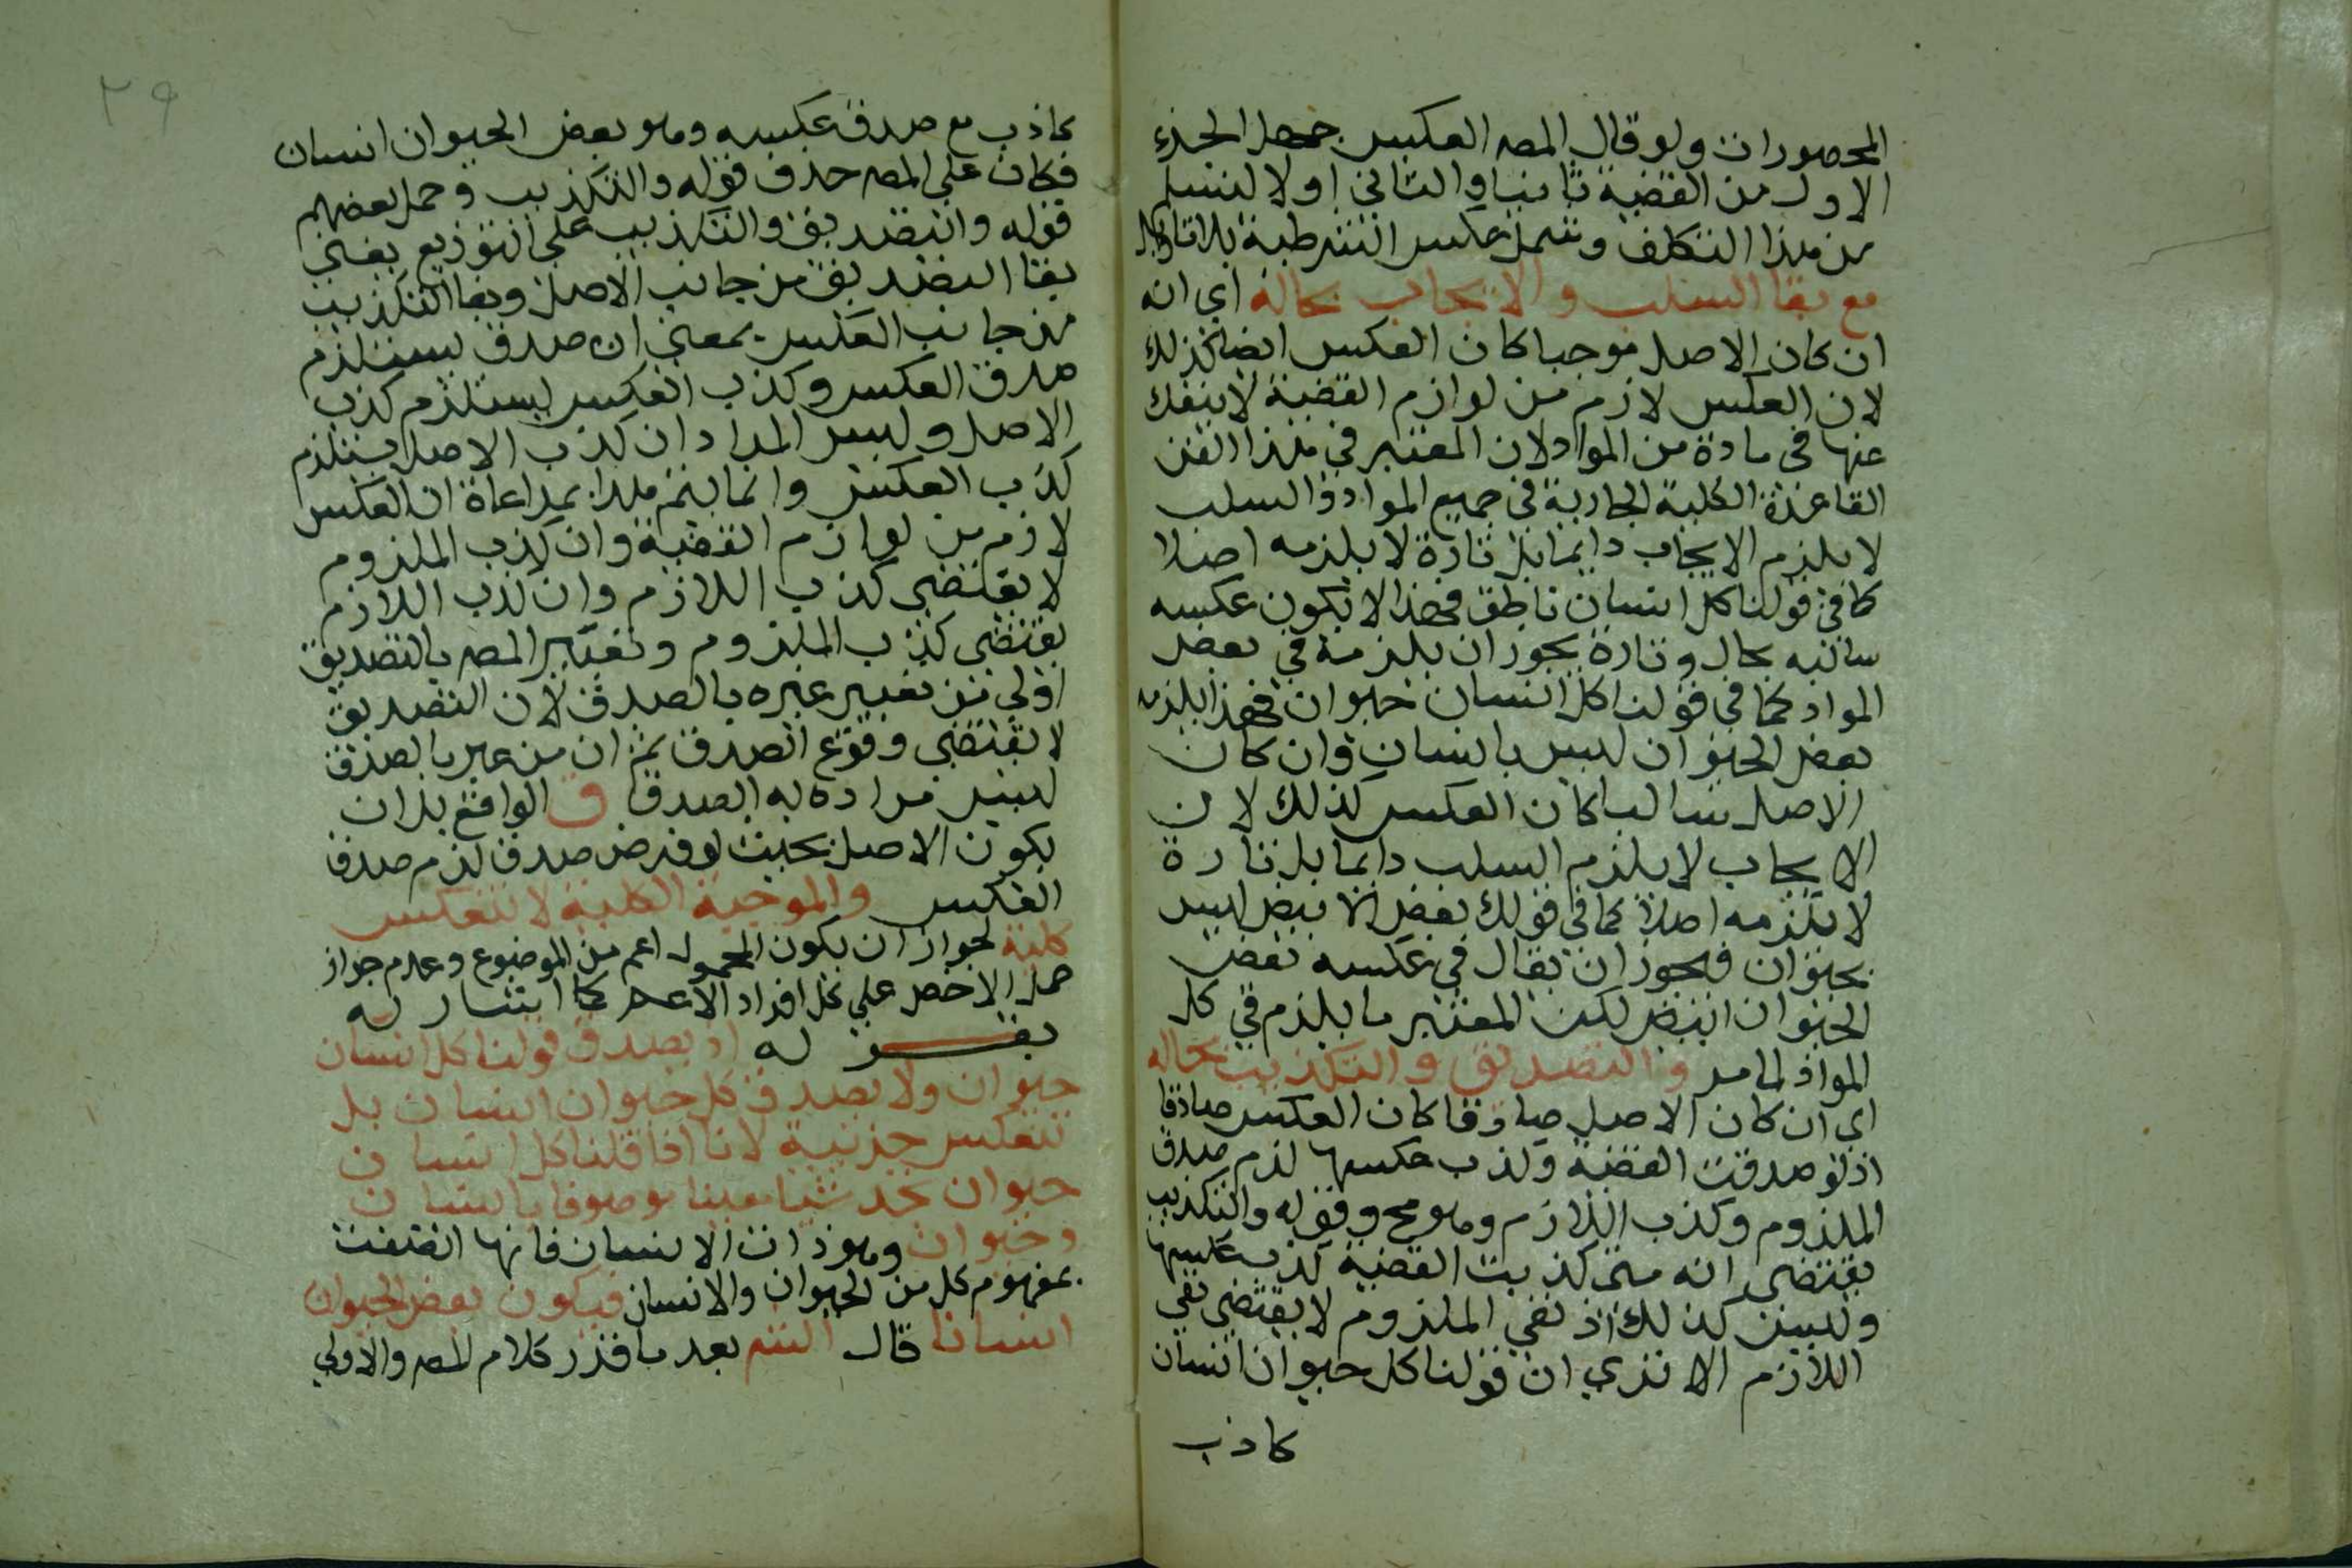 المحصورات ولو قال المصه العكس جعل الجزء
الاول من القضية ثانيا والثاني اولا لسلم
من هذا التكلف وشمل عكس الشرطية بلا تاويل
مع بقا السلب والايجاب بحاله اي انه
ان كان الاصل موجبا كان العكس ايضا كذلك
لان العكس لازم من لوازم القضية لا ينفك
عنها في مادة من المواد لان المعتبر في هذا الفن
القاعدة الكلية الجارية في جميع المواد والسلب
لا يلزم الايجاب دايما بل تارة لا يلزمه اصلا
كما في قولنا كل انسان ناطق فهذا لا تكون عكسه
سالبه بحال وتارة يجوز ان يلزمه في بعض
المواد كما في قولنا كل انسان حيوان فهذا يلزمه
بعض الحيوان ليس بانسان وان كان
الاصل سالبا كان العكس كذلك لان
الايجاب لا يلزم السلب دايما بل تارة
لا يلزمه اصلا كما في قولك بعض الابيض ليس
بحيوان فيجوز ان يقال في عكسه بعض
الحيوان ابيض لكن المعتبر ما يلزم في كل
المواد لما مر والتصديق والتكذيب بحاله
اي ان كان الاصل صادقا كان العكس صادقا
اذ لو صدقت القضية وكذب عكسها لزم صدق
الملزوم وكذب اللازم وهو مح وقوله والتكذيب
يقتضي انه متى كذبت القضية كذب عكسها
وليس كذلك اذ نفي الملزوم لا يقتضي نفي
اللازم الا تري ان قولنا كل حيوان انسان
كاذب
٢٩
كاذب مع صدق عكسه وهو بعض الحيوان انسان
فكان على المصه حذف قوله والتكذيب وحمل بعضهم
قوله والتصديق والتكذيب على التوزيع يعني
بقا التصديق من جانب الاصل وبقا التكذيب
من جانب العكس بمعني ان صدق يستلزم
صدق العكس وكذب العكس يستلزم كذب
الاصل وليس المراد ان كذب الاصل يستلزم
كذب العكس وانما يتم هذا بمراعاة ان العكس
لازم من لوازم القضية وان كذب الملزوم
لا يقتضي كذب اللازم وان كذب اللازم
يقتضي كذب الملزوم وتعبير المصه بالتصديق
اولي من تعبير غيره بالصدق لان التصديق
لا يقتضي وقوع الصدق ثم ان من عبر بالصدق
ليس مراده به الصدق ق الواقع بل ان
يكون الاصل بحيث لو فرض صدق لزم صدق
العكس والموجبة الكلية لا تنعكس
كلية لجواز ان يكون المحمول اعم من الموضوع وعدم جواز
حمل الاخص علي كل افراد الاعم كما اشار له
له اذ يصدق قولنا كل انسان
حيوان ولا يصدق كل حيوان انسان بل
تنعكس جزئية لانا اذا قلنا كل انسان
حيوان نجد شيا معينا موصوفا بالانسان
وحيوان وهو ذات الانسان فانها اتصفت
بمفهوم كل من الحيوان والانسان فيكون بعض الحيوان
انسانا قال الشه بعد ما قدر كلام المصه والاولي